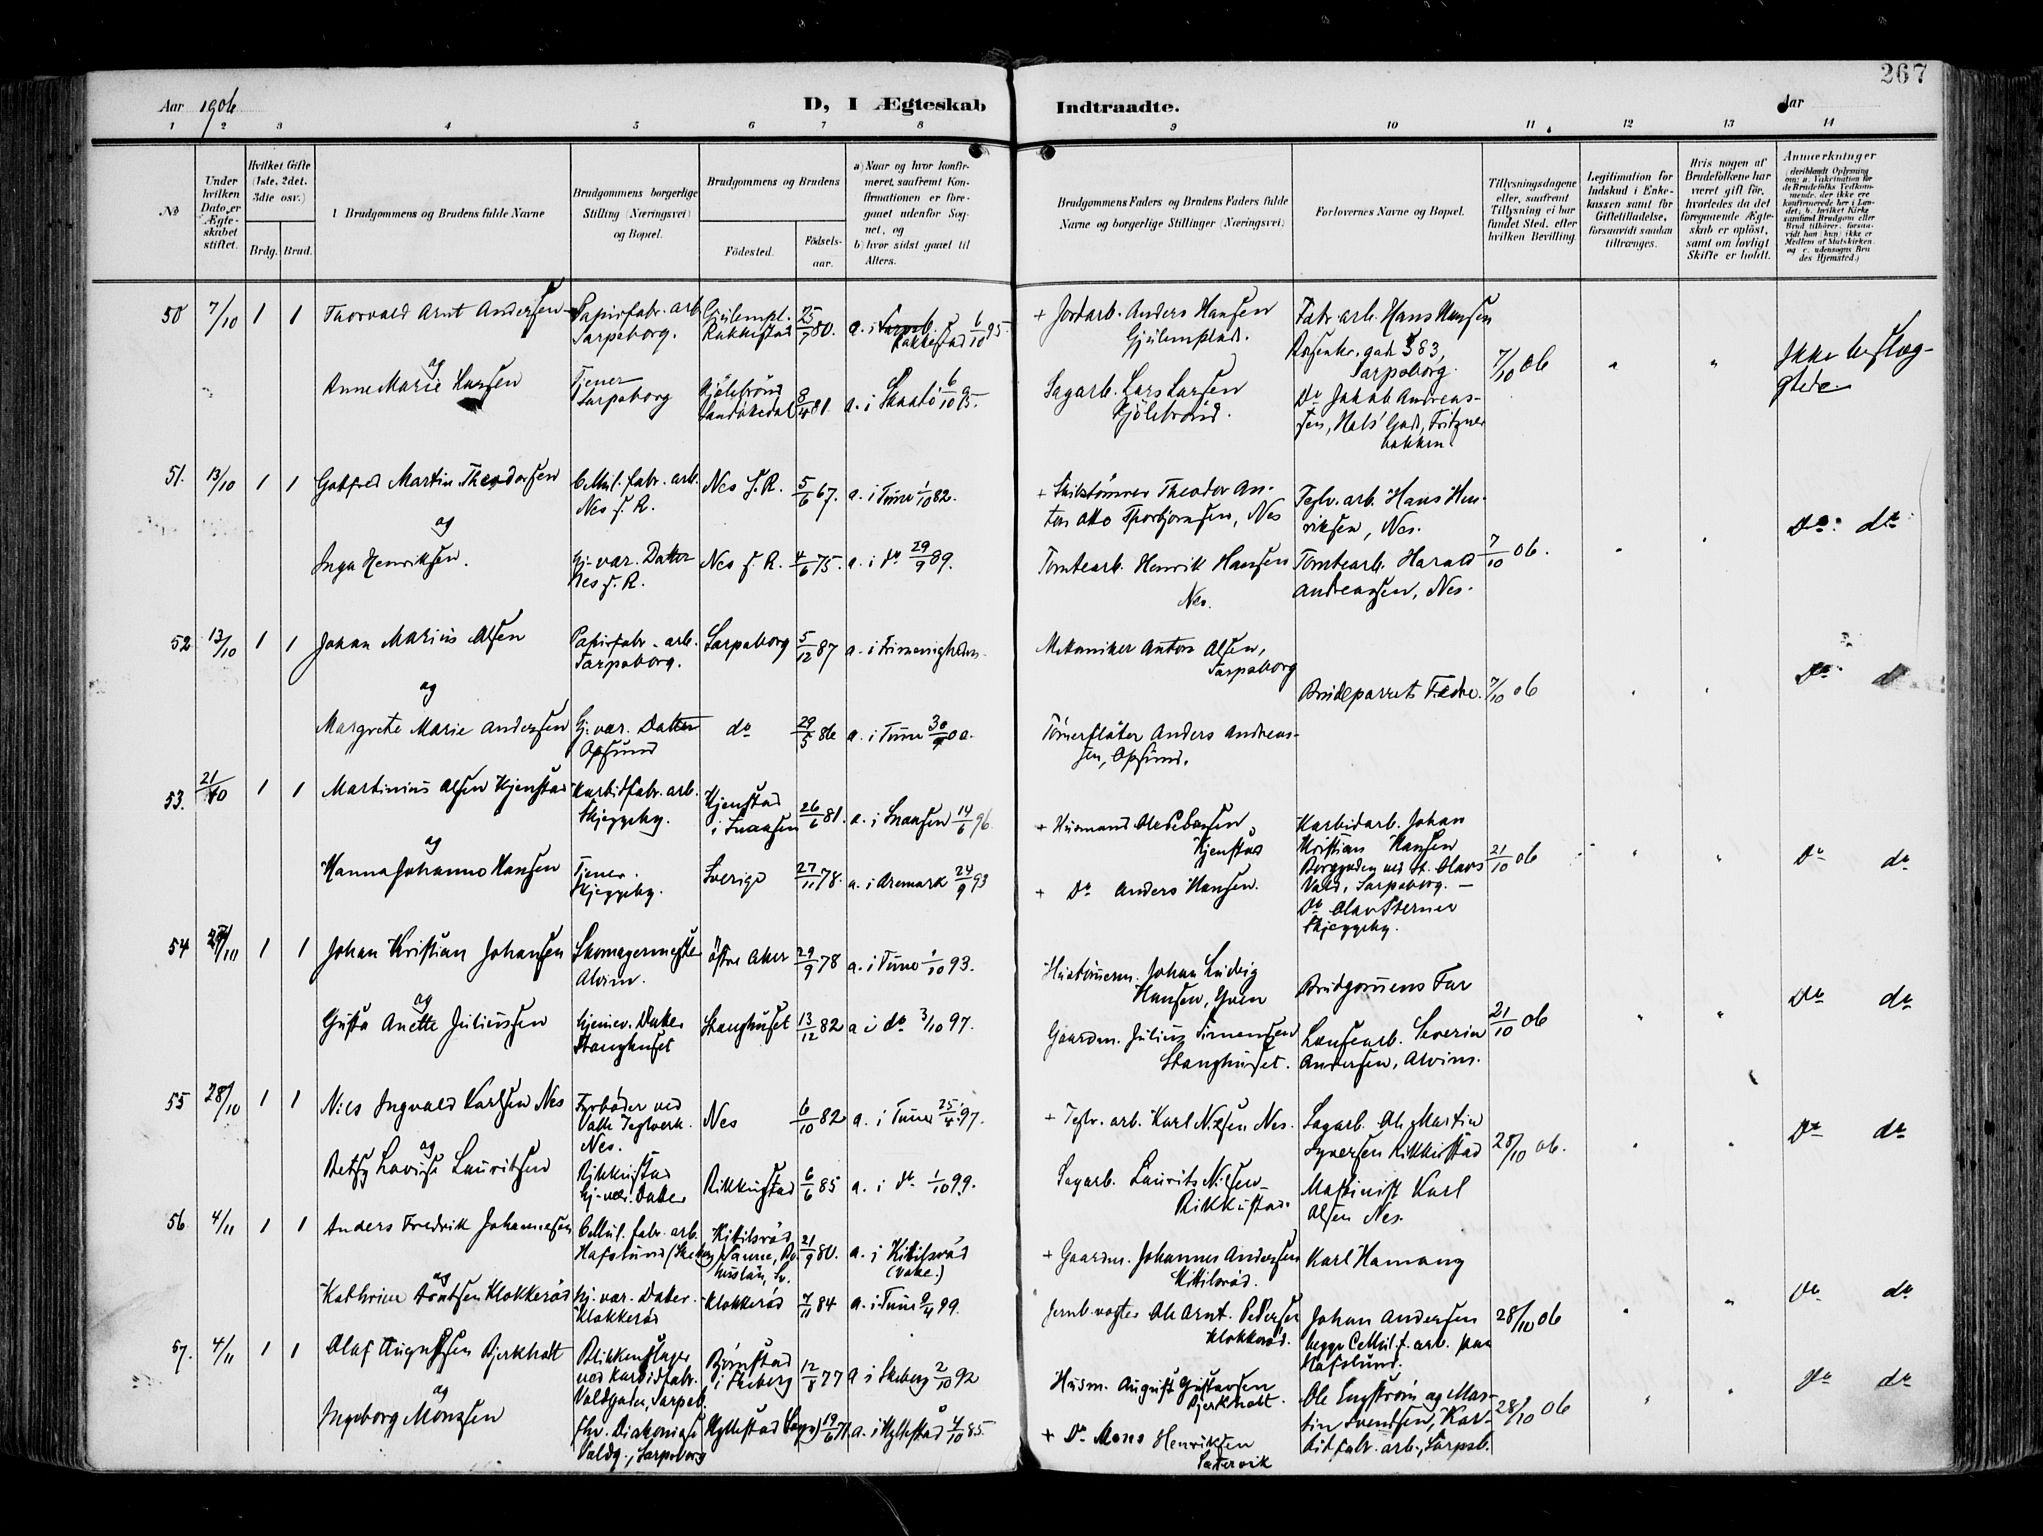 267
Aar 1906
D, I Ægteskab Indtraadte.
Aar
1 2 3 4 5 6 7 8 9 10 11 12 13 14
No
Under hvilken Dato er Ægteskabet stiftet.
Hvilket Gifte (1ste, 2det, 3dte osv.)
Brdg. Brud.
Brudgommens og Brudens fulde Navne
Brudgommens borgerlige Stilling (Næringsvei) og Bopæl.
Brudgommens og Brudens
Fødested.
Fødselsaar.
a) Naar og hvor konfirmeret, saafremt Konfirmationen er foregaaet udenfor Sognet, og
b) hvor sidst gaaet til Alters.
Brudgommens Faders og Brudens Faders fulde Navne og borgerlige Stillinger (Næringsvei)
Forlovernes Navne og Bopæl.
Tillysningsdagene eller, saafremt Tillysning ei har fundet Sted, efter hvilken Bevilling.
Legitimation for Indskud i Enkekassen samt for Giftetilladelse, forsaavidt saadan tiltrænges.
Hvis nogen af Brudefolkene har været gift før, hvorledes da det foregaaende Ægteskab er opløst, samt om lovligt Skifte er holdt.
Anmerkninger (deriblandt Oplysning om: a. Vaksination for de Brudefolks Vedkommende, der ikke ere konfirmerede her i Landet; b. hvilket Kirkesamfund Brudgom eller Brud tilhører, forsaavidt han (hun) ikke er Medlem af Statskirken, og c. udensogns Brudes Hjemsted.)
50 7/10 1 1 Thorvald Arnt Andersen Papirfabr. arb. Sarpsborg. Gjulempl. Rakkestad 25/9 80. a. i Rakkestad 6/10 95.
+ Jordarb. Anders Hansen Gjulemplads. Fabr. arb. Hans Hansen Rosenkr. gade 383, Sarpsborg. 7/10 06 " " Ikke beslægtede.
og
Anne Marie Larsen Tjener Sarpsborg Kjølebrønd Sandøkedal 8/4 81. a. i Skaatø 6/10 95.
Sagarb. Lars Larsen Kjølebrønd. Do Jakob Andreassen, Hals' Gad, Fritznerbakken.
51. 13/10 1 1 Gotfred Martin Theodorsen Cellul. fabr. arb. Nes f. R. Nes f. R. 5/6 67. a. i Tune 1/10 82.
+ Theodor Anton Otto Thorbjørnsen, Nes Teglv. arb. Hans Henriksen, Nes.
og
Inga Henriksen. Hj. vær. Datter Nes f. R. Nes f. R. 4/6 75. a. i do 29/9 89.
Tomtearb. Henrik Hansen Nes. Tomtearb. Harald Andreassen, Nes. 7/10 06. " " Do do
52 13/10 1 1 Johan Marius Olsen Papirfabr. arb. Sarpsborg. Sarpsborg 5/12 87 a. i Frimenigheden.
Mekaniker Anton Olsen, Sarpsborg
Brudeparrets Fædre. 7/10 06 " " Do d
og
Margrete Marie Andersen Hj. vær. Datter Opsund do 29/5 86 a. i Tune 30/9 00.
Tømerfløter Anders Andreassen, Opsund.
53. 21/10 1 1 Martinius Olsen Hjenstad Karbidfabr. arb. Skjeggeby. Hjenstad i Snaasen 26/6 81. a. i Snaasen 14/6 96.
+ Husmand Ole Hjenstad Karbidarb. Johan Kristian Hansen Borggaden ved St. Olavs Vold, Sarpsborg. – 21/10 06 " " Do do
og
Hanna Johanne Hansen Tjener. Skjeggeby. Sverige 27/11 78. a. i Aremark 24/9 93
+ Do Anders Hansen. Do Olav Sterner Skjeggeby.
54 /10 1 1 Johan Kristian Johansen Skomagermester Alvim. Østre Aker 29/9 78 a. i Tune 1/10 93.
Hustømerm. Johan Ludvig Hansen, Yven Brudgommens Far
og
Gusta Anette Juliussen Hjemev. Datter Stanghuset Stanghuset 13/12 82 a i do 3/10 97.
Gaardm. Julius Simensen Stanghuset. Lænsearb. Severin Andersen, Alvim. 21/10 06 " " Do do
55 28/10 1 1 Nils Ingvald Karlsen Nes Fyrbøder ved Valle Teglverk. Nes. Nes 6/10 82 a. i Tune 25/4 97.
+ Teglv. arb. Karl Nilsen Nes. Sagarb. Ole Martin Syversen Rikkustad 28/10 06. " " Do do
og
Betsy Lovise Lauritsen Rikkustad Hj. vær. Datter Rikkustad 6/6 85 a. i do 1/10 99.
Sagarb. Laurits Nilsen Rikkustad. Maskinist Karl Olsen Nes.
56 4/11 1 1 Anders Fredrik Johannesen Cellul. fabr. arb. Hafslund (Skeberg) Kikilsrød Bohuslän, Sv. 21/9 80. a. i Kikilsrød
+ Gaardm. Johannes Andersen Kikilsrød. Karl Hamang
og
Kathrine Arntsen Klokkerød Hj. vær. Datter. Klokkerød Klokkerød 7/11 84 a. i Tune 9/4 99.
Jernb. vogter Ole Arnt Pedersen Klokkerød. Johan Andersen begge Cellul. f. arb. paa Hafslund. 28/10 06 " " Do do
57. 4/11 1 1 Olaf Augustsen Bjerkholt Blikkenslager ved Karbidfabr. Voldgaden, Sarpsb. Bjørnstad i Skeberg 12/8 77 a i Skeberg 2/10 92
Husm. August Gustavsen Bjerkholt Ole Engstrøm og Martin Svendsen, Karbidfabr. arb., Sarpsb. 28/10 06 " " Do do
og
Ingeborg Mønssen Fhv. Diakonisse Voldg., Sarpsborg Hyllestad (Sogn) 19/6 71. a. i Hyllestad 4/10 85
+ Do Mons Henriksen Sætervik